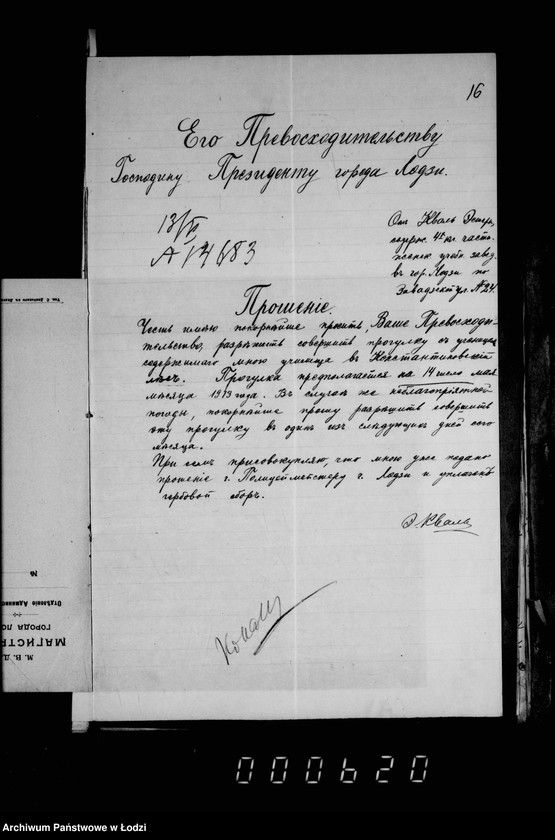 16
Его Превосходительству
Господину Президенту города Лодзи.
13/V
А 14683
От Кваль Эстер,
содерж. 4х кл. частн.
женск. учебн. завед.
въ гор. Лодзи по
Завадзской ул. №24.
Прошеніе.
Честь имѣю покорнѣйше просить, Ваше Превосходи-
тельство, разрѣшить совершить прогулку съ ученицами
содержимаго мною училища въ Константиновскій
лѣсъ. Прогулка предполагается на 14 число мая
мѣсяца 1913 года. Въ случаѣ же неблагопріятной
погоды, покорнѣйше прошу разрѣшить совершить
эту прогулку въ одинъ изъ слѣдующихъ дней сего
мѣсяца.
При семъ присовокупляю, что мною уже подано
прошеніе г. Полицеймейстеру г. Лодзи и уплаченъ
гербовой сборъ.
Э. Кваль
№
Отдѣленіе Админис
ГОРОДА ЛО
МАГИСТР
М. В. Д.
000620
Archiwum Państwowe w Łodzi